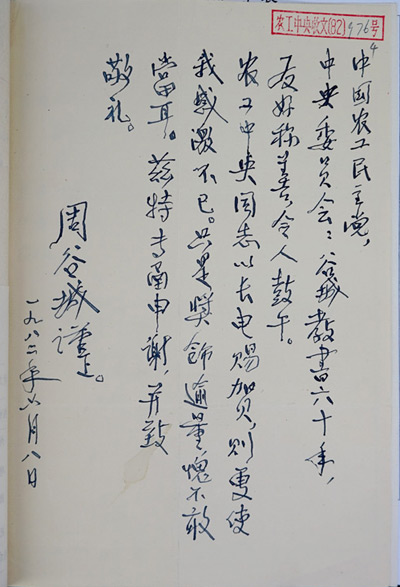 农工中央收文(82) 76号
中国农工民主党,
中央委员会:谷城教书六十年,
友好称善,令人鼓午。
农工中央同志以长电赐贺,则更使
我感激不已。只是奖饰逾量,愧不敢
當耳。兹特专函申谢,并致
敬礼。
周谷城谨上。
一九八二年六月八日